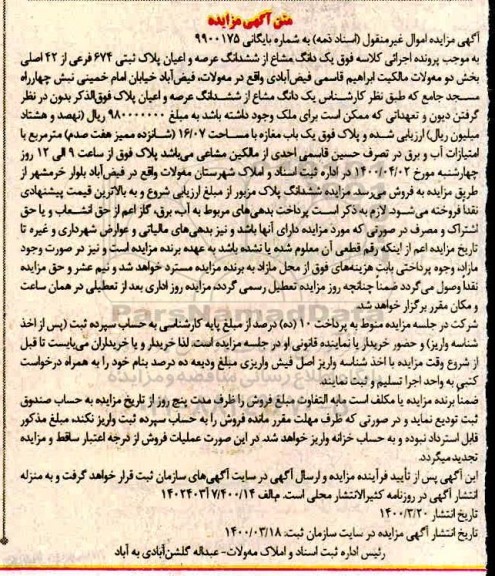 متن آگهی مزایده
آگهی مزایده اموال غیرمنقول (اسناد ذمه) به شماره بایگانی ۹۹۰۰۱۷۵
به موجب پرونده اجرائی کلاسه فوق یک دانگ مشاع از ششدانگ عرصه و اعیان پلاک ثبتی ۶۷۴ فرعی از ۴۲ اصلی
بخش دو مه‌ولات مالکیت ابراهیم قاسمی فیض‌آبادی واقع در مه‌ولات، فیض‌آباد خیابان امام خمینی نبش چهارراه
مسجد جامع که طبق نظر کارشناس یک دانگ مشاع از ششدانگ عرصه و اعیان پلاک فوق‌الذکر بدون در نظر
گرفتن دیون و تعهداتی که ممکن است برای ملک وجود داشته باشد به مبلغ ۹۸۰۰۰۰۰۰۰ ریال (نهصد و هشتاد
میلیون ریال) ارزیابی شده و پلاک فوق یک باب مغازه با مساحت ۱۶/۰۷ (شانزده ممیز هفت صدم) مترمربع با
امتیازات آب و برق در تصرف حسین قاسمی احدی از مالکین مشاعی می‌باشد پلاک فوق از ساعت ۹ الی ۱۲ روز
چهارشنبه مورخ ۱۴۰۰/۰۴/۰۲ در اداره ثبت اسناد و املاک شهرستان مه‌ولات واقع در فیض‌آباد بلوار خرمشهر از
طریق مزایده به فروش می‌رسد. مزایده ششدانگ پلاک مزبور از مبلغ ارزیابی شروع و به بالاترین قیمت پیشنهادی
نقداً فروخته می‌شود. لازم به ذکر است پرداخت بدهی‌های مربوط به آب، برق، گاز اعم از حق انشعاب و یا حق
اشتراک و مصرف در صورتی که مورد مزایده دارای آنها باشد و نیز بدهی‌های مالیاتی و عوارض شهرداری و غیره تا
تاریخ مزایده اعم از اینکه رقم قطعی آن معلوم شده یا نشده باشد به عهده برنده مزایده است و نیز در صورت وجود
مازاد، وجوه پرداختی بابت هزینه‌های فوق از محل مازاد به برنده مزایده مسترد خواهد شد و نیم عشر و حق مزایده
نقداً وصول می‌گردد ضمناً چنانچه روز مزایده تعطیل رسمی گردد، مزایده روز اداری بعد از تعطیلی در همان ساعت
و مکان مقرر برگزار خواهد شد.
شرکت در جلسه مزایده منوط به پرداخت ۱۰ (ده) درصد از مبلغ پایه کارشناسی به حساب سپرده ثبت (پس از اخذ
شناسه واریز) و حضور خریدار یا نماینده قانونی او در جلسه مزایده است، لذا خریدار و یا خریداران می‌بایست تا قبل
از شروع وقت مزایده با اخذ شناسه واریز اصل فیش واریزی مبلغ ودیعه ده درصد بنام خود را به همراه درخواست
کتبی به واحد اجرا تسلیم و ثبت نمایند.
ضمناً برنده مزایده یا مکلف است مابه التفاوت مبلغ فروش را ظرف مدت پنج روز از تاریخ مزایده به حساب صندوق
ثبت تودیع نماید و در صورتی که ظرف مهلت مقرر مانده فروش را به حساب سپرده ثبت واریز نکند، مبلغ مذکور
قابل استرداد نبوده و به حساب خزانه واریز خواهد شد. در این صورت عملیات فروش از درجه اعتبار ساقط و مزایده
تجدید میگردد.
این آگهی پس از تأیید فرآینده مزایده و ارسال آگهی در سایت آگهی‌های سازمان ثبت قرار خواهد گرفت و به منزله
انتشار آگهی در روزنامه کثیرالانتشار محلی است. م‌الف ۷/۴۰۰/۱۴ آ۱۴۰۲۴۰۳
تاریخ انتشار ۱۴۰۰/۳/۲۰
تاریخ انتشار آگهی مزایده در سایت سازمان ثبت: ۱۴۰۰/۰۳/۱۸
رئیس اداره ثبت اسناد و املاک مه‌ولات- عبداله گلشن‌آبادی به آباد
ParsNamadData